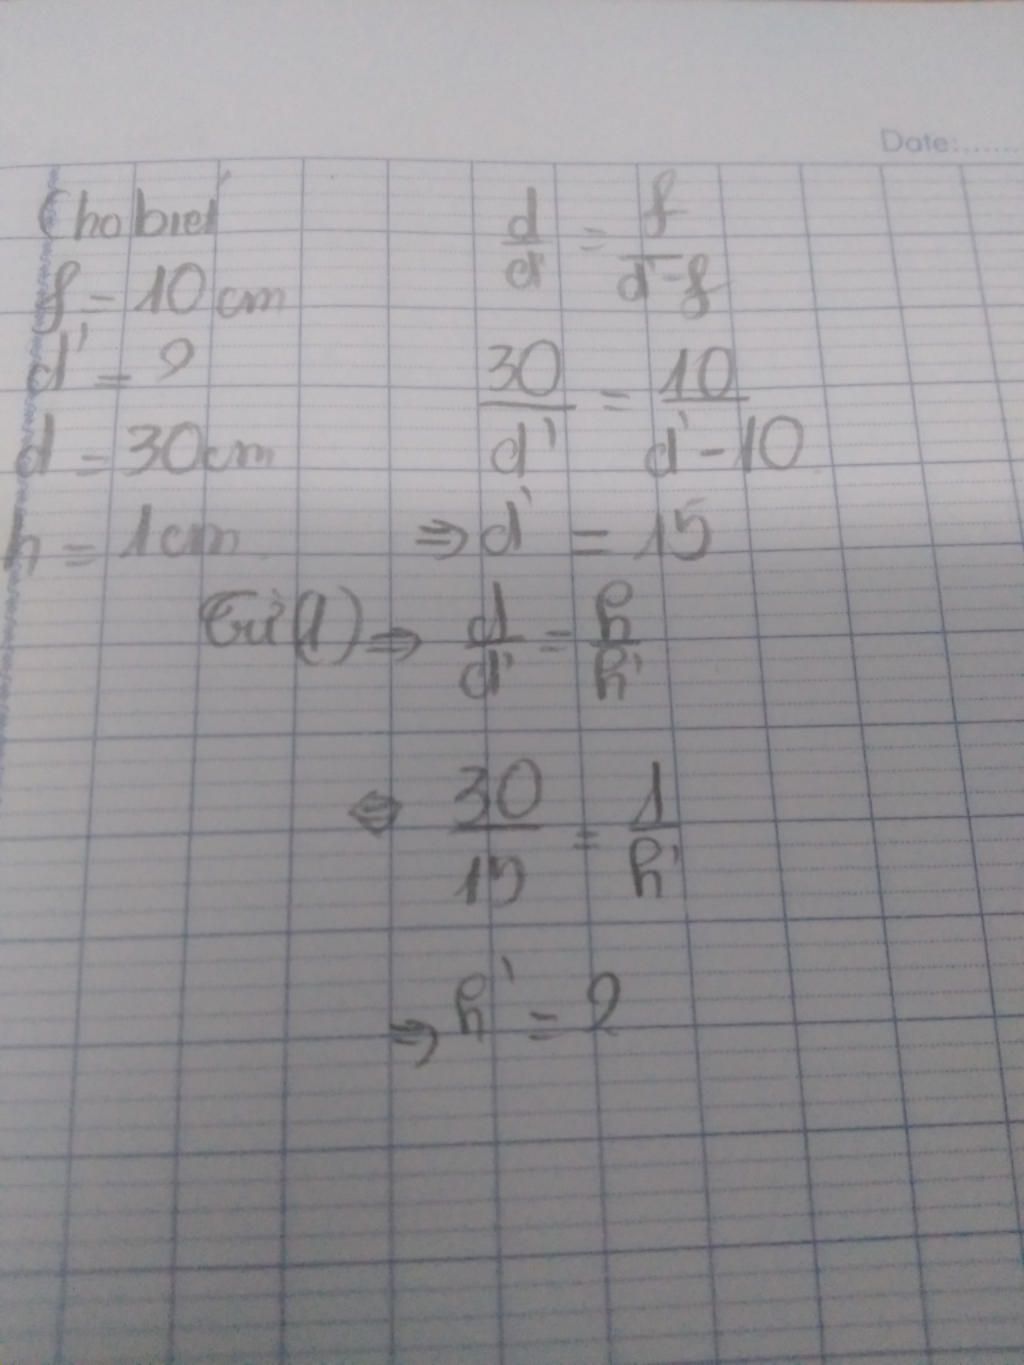 Date:......
Cho biết
f = 10 cm
d' = ?
d = 30cm
h = 1cm
d/d' = f/d'-f
30/d' = 10/d'-10
⇒ d' = 15
Từ (1) ⇒ d/d' = h/h'
⇔ 30/15 = 1/h'
⇒ h' = 2